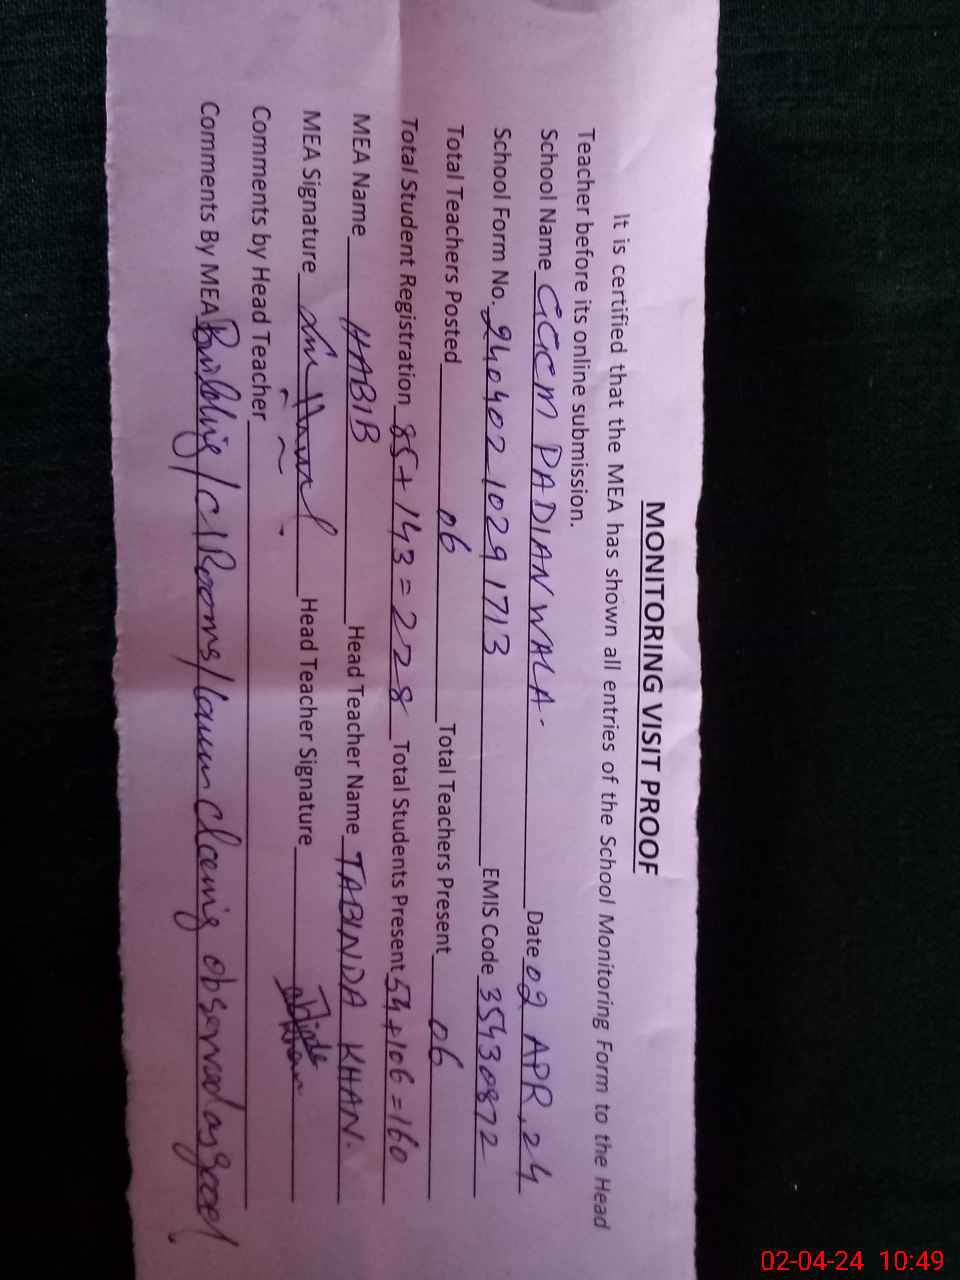 MONITORING VISIT PROOF
It is certified that the MEA has shown all entries of the School Monitoring Form to the Head
Teacher before its online submission.
School Name GGCM PADIANWALA. Date 02 APR, 24
School Form No. 2404021029 1713 EMIS Code 35430872
Total Teachers Posted 06 Total Teachers Present 06
Total Student Registration 85+143=228 Total Students Present 54+106=160
MEA Name HABIB Head Teacher Name TABINDA KHAN.
MEA Signature Head Teacher Signature
Comments by Head Teacher
Comments By MEA Building/C/Rooms/Lawn Cleaing observed as good.
02-04-24 10:49